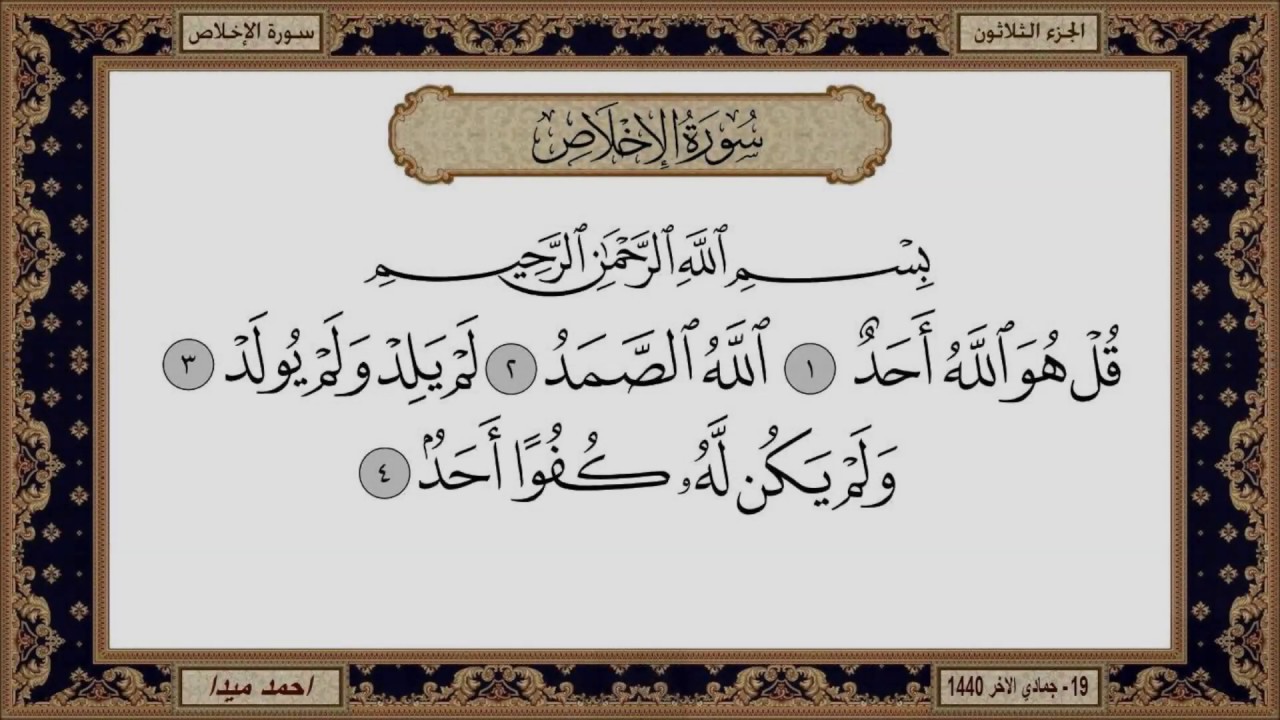 الجزء الثلاثون
سورة الإخلاص
سُورَةُ الإِخْلَاصِ
بِسْمِ ٱللَّهِ ٱلرَّحْمَٰنِ ٱلرَّحِيمِ
قُلْ هُوَ ٱللَّهُ أَحَدٌ ١ ٱللَّهُ ٱلصَّمَدُ ٢ لَمْ يَلِدْ وَلَمْ يُولَدْ ٣
وَلَمْ يَكُن لَّهُۥ كُفُوًا أَحَدٌۢ ٤
19- جمادي الاخر 1440
احمد ميدا